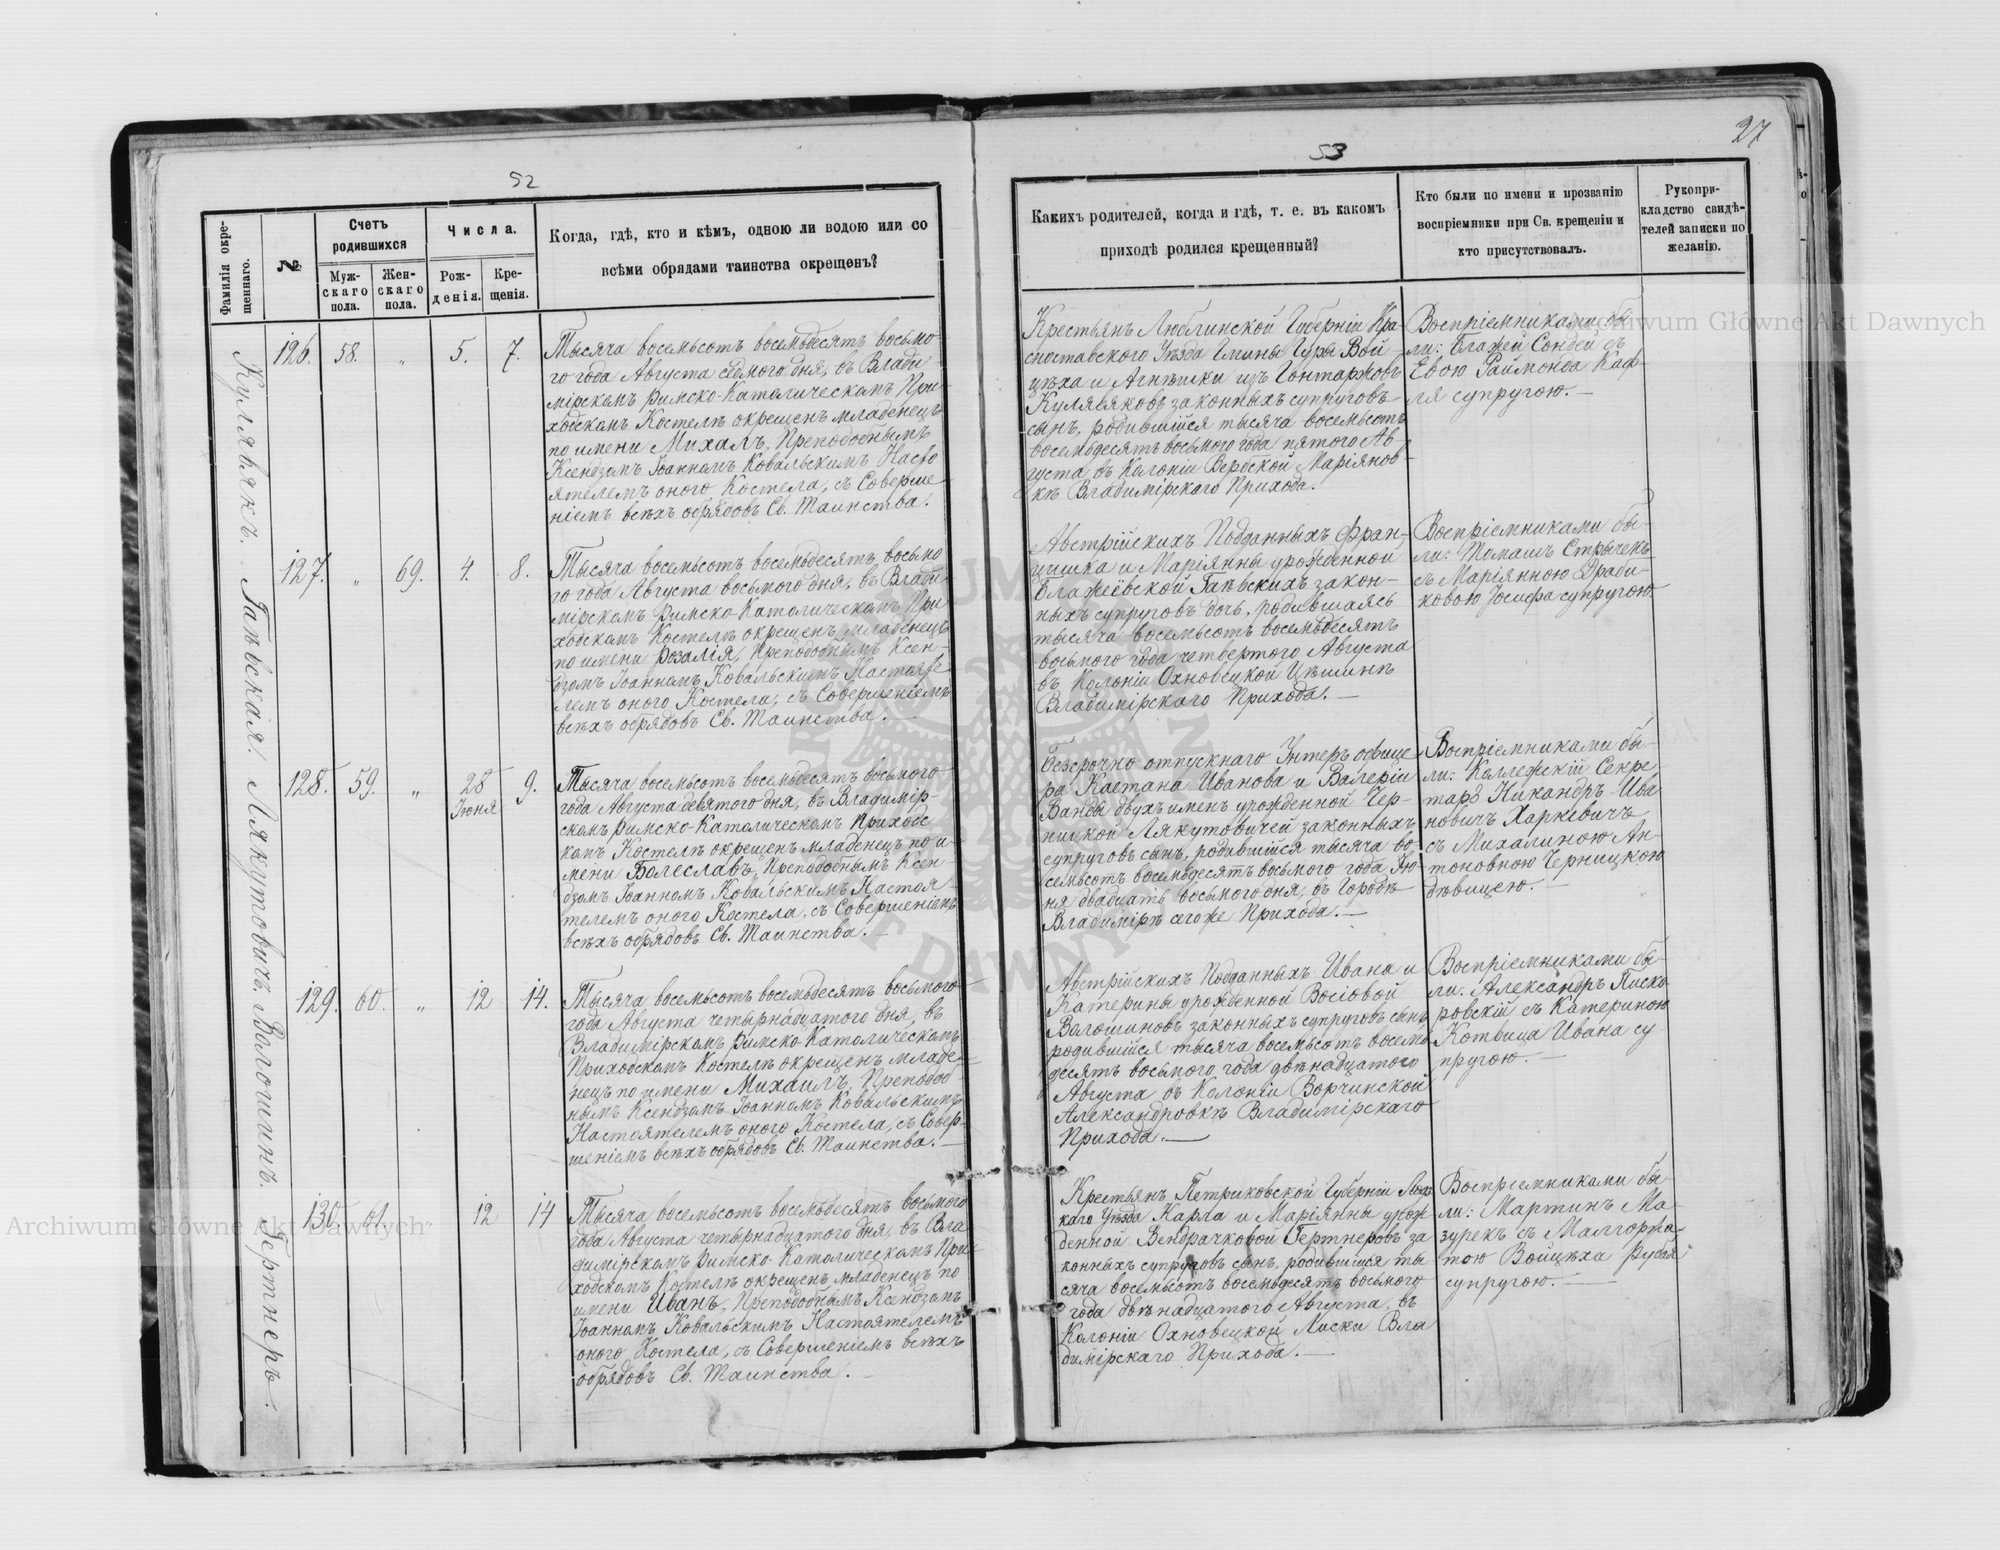 52
Фамилія окре-
щеннаго.
№
Счетъ
родившихся
Муж-
скаго
пола.
Жен-
скаго
пола.
Числа.
Рож-
денія.
Кре-
щенія.
Когда, гдѣ, кто и кѣмъ, одною ли водою или со
всѣми обрядами таинства окрещенъ?
Кулявякъ.
126. 58. „ 5. 7.
Тысяча восемьсотъ восемьдесятъ восьмо
го года Августа седмого дня, въ Влади
мірскомъ Римско-Католическомъ При
ходскомъ Костелѣ окрещенъ младенецъ
по имени Михалъ, Преподобнымъ
Ксендзомъ Іоанномъ Ковальскимъ Насто
ятелемъ оного Костела, съ Соверше
ніемъ всѣхъ обрядовъ Св. Таинства.
Гаѣвская.
127. „ 69. 4. 8.
Тысяча восемьсотъ восемьдесятъ восьмо
го года Августа восьмого дня, въ Влади-
мірскомъ Римско-Католическомъ При
ходскомъ Костелѣ окрещенъ младенецъ
по имени Розалія, Преподобнымъ Ксен-
дзомъ Іоанномъ Ковальскимъ Настояте
лемъ оного Костела, съ Совершеніемъ
всѣхъ обрядовъ Св. Таинства. —
Лякутовичъ.
128. 59. „ 28 Іюня 9.
Тысяча восемьсотъ восемьдесятъ восьмого
года Августа девятого дня, въ Владимір-
скомъ Римско-Католическомъ Приходс
комъ Костелѣ окрещенъ младенецъ по и
мени Болеславъ, Преподобнымъ Ксен-
дзомъ Іоанномъ Ковальскимъ Настоя
телемъ оного Костела, съ Совершеніемъ
всѣхъ обрядовъ Св. Таинства. —
Волошинъ.
129. 60. „ 12 14.
Тысяча восемьсотъ восемьдесятъ восьмого
года Августа четырнадцатого дня, въ
Владимірскомъ Римско-Католическомъ
Приходскомъ Костелѣ окрещенъ младе-
нецъ по имени Михаилъ, Преподоб-
нымъ Ксендзомъ Іоанномъ Ковальскимъ
Настоятелемъ оного Костела, съ Совер-
шеніемъ всѣхъ обрядовъ Св. Таинства. —
Гертнеръ.
130 61 „ 12 14
Тысяча восемьсотъ восемьдесятъ восьмого
года Августа четырнадцатого дня, въ Вла
димірскомъ Римско-Католическомъ При-
ходскомъ Костелѣ окрещенъ младенецъ по
имени Иванъ, Преподобнымъ Ксендзомъ
Іоанномъ Ковальскимъ Настоятелемъ
оного Костела, съ Совершеніемъ всѣхъ
обрядовъ Св. Таинства. —
53
27
Какихъ родителей, когда и гдѣ, т. е. въ какомъ
приходѣ родился крещенный?
Кто были по имени и прозванію
воспріемники при Св. крещеніи и
кто присутствовалъ.
Рукопри-
кладство свидѣ-
телей записки по
желанію.
Крестьянъ Люблинской Губерніи Кра-
сноставского Уѣзда Гмины Гуры Вой-
цѣха и Агнѣшки изъ Гонтаржовъ
Кулявяковъ законныхъ супруговъ
сынъ, родившійся тысяча восемьсотъ
восемьдесятъ восьмого года пятого Ав
густа въ Колоніи Вербской Маріянов-
кѣ Владимірскаго Прихода.
Воспріемниками бы-
ли: Блажей Сондей съ
Евою Раймонда Каф-
ля супругою. —
Австрійскихъ Подданныхъ Фран-
цишка и Маріянны урожденной
Блажеёвской Гаѣвскихъ закон-
ныхъ супруговъ дочь, родившаясь
тысяча восемьсотъ восемьдесятъ
восьмого года четвертого Августа
въ Колоніи Охновецкой Цѣшинѣ
Владимірскаго Прихода. —
Воспріемниками бы-
ли: Томашъ Стрычекъ
съ Маріянною Драби-
ковою Іосифа супругою
Безсрочно отпускнаго Унтеръ офице-
ра Каетана Иванова и Валеріи
Ванды двухъ именъ урожденной Чер-
ницкой Лякутовичей законныхъ
супруговъ сынъ, родившійся тысяча во-
семьсотъ восемьдесятъ восьмого года Ію-
ня двадцать восьмого дня, въ Городѣ
Владимірѣ сегоже Прихода. —
Воспріемниками бы-
ли: Коллежскій Секре
тарь Никандръ Ива
новичъ Харкевичъ
съ Михалиною Ан-
тоновною Черницкою
дѣвицею. —
Австрійскихъ Подданныхъ Ивана и
Катерины урожденной Восіовой
Волошиновъ законныхъ супруговъ сынъ
родившійся тысяча восемьсотъ восемь
десятъ восьмого года двѣнадцатого
Августа въ Колоніи Ворчинской
Александровкѣ Владимірскаго
Прихода. —
Воспріемниками бы-
ли: Александръ Писко
ровскій съ Катериною
Котвица Ивана су
пругою. —
Крестьянъ Петриковской Губерніи
каго Уѣзда Карла и Маріянны урож
денной Вендрачковой Гертнеровъ за
конныхъ супруговъ сынъ, родившійся ты
сяча восемьсотъ восемьдесятъ восьмого
года двѣнадцатого Августа, въ
Колоніи Охновецкой Лиски Вла
димірскаго Прихода. —
Воспріемниками бы-
ли: Мартинъ Ма-
зурекъ съ Малгоржа-
тою Войцѣха Рубай
супругою. —
Archiwum Główne Akt Dawnych
Archiwum Główne Akt Dawnych